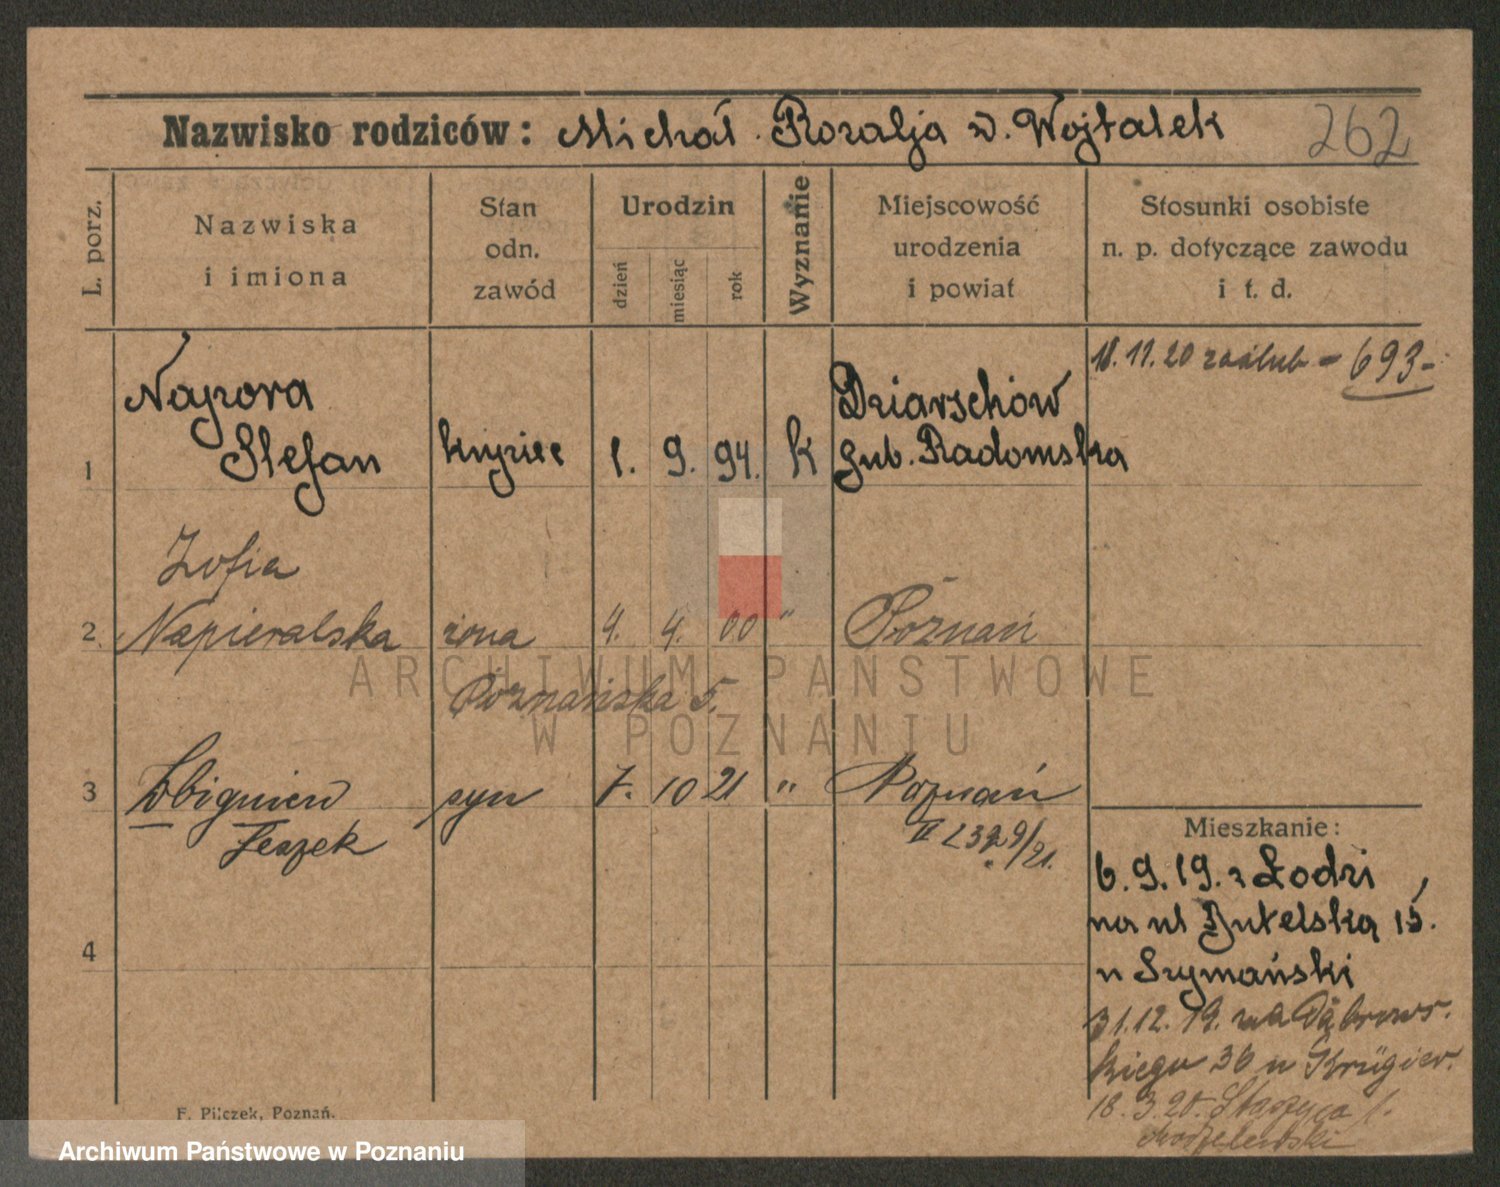 Nazwisko rodziców: Michał Rozalja z. Wojtalek 262
L. porz.
Nazwiska
i imiona
Stan
odn.
zawód
Urodzin
dzień
miesiąc
rok
Wyznanie
Miejscowość
urodzenia
i powiat
Stosunki osobiste
n. p. dotyczące zawodu
i t. d.
18.11.20 zaślub - 693-
Napora
1 Stefan kupiec 1. 9. 94. k
Dziarschów
gub. Radomska
Zofia
2 Napieralska żona 4. 4. 00 " Poznań
Poznańska 5.
3 Zbigniew syn 7. 10 21 " Poznań
Leszek
4
Mieszkanie:
6.9.19. z Łodzi
na ul Butelska 15.
u Szymański
31.12.19. na Dąbrows.
kiego 36 u Krügier.
18.3.20. 1.
F. Pilczek, Poznań.
ARCHIWUM PAŃSTWOWE
W POZNANIU
Archiwum Państwowe w Poznaniu